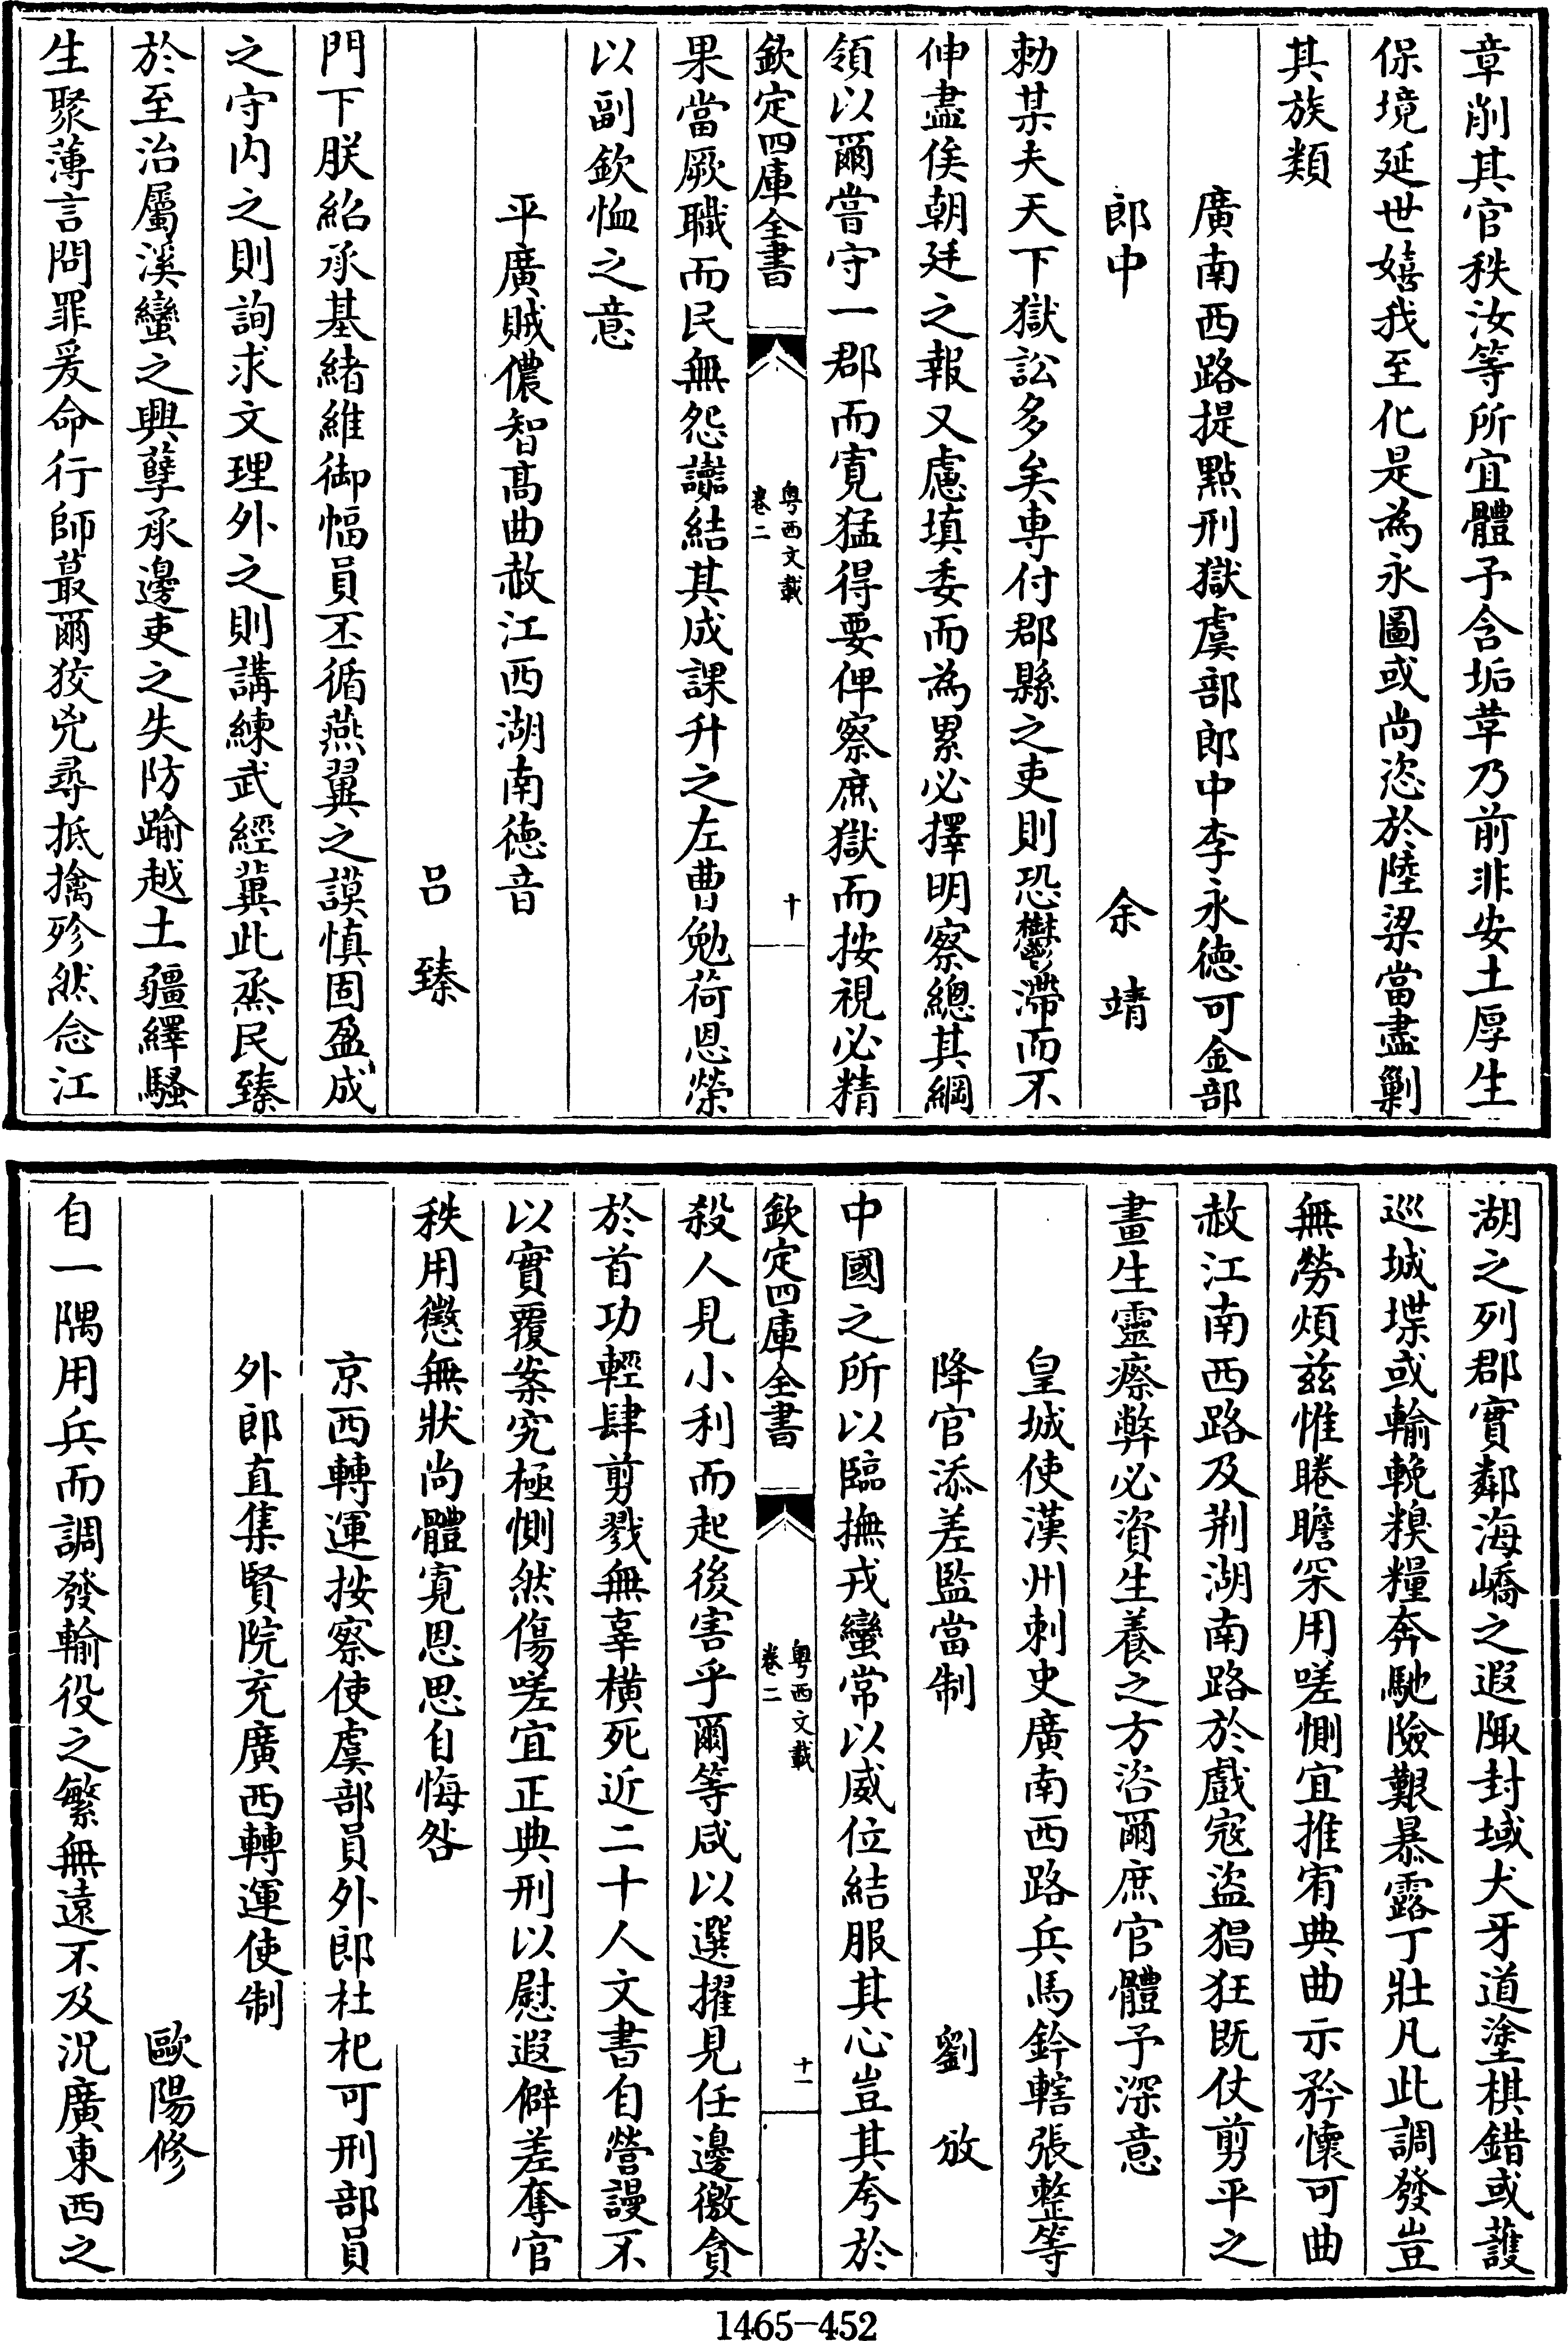 章削其官秩汝等所宜體予含垢革乃前非安土厚生
保境延世嬉我至化是為永圖或尚恣於陸梁當盡剿
其族類
廣南西路提點刑獄虞部郎中李永徳可金部
郎中
余靖
勅某夫天下獄訟多矣専付郡縣之吏則恐鬱滯而不
伸盡俟朝廷之報又慮填委而為累必擇明察總其綱
領以爾嘗守一郡而寛猛得要俾察庶獄而按視必精
欽定四庫全書
粤西文載
卷二
十
果當厥職而民無怨讟結其成課升之左曹勉荷恩榮
以副欽恤之意
平廣賊儂智髙曲赦江西湖南徳音
吕臻
門下朕紹承基緒維御幅員丕循燕翼之謨慎固盈成
之守内之則詢求文理外之則講練武經冀此烝民臻
於至治屬溪蠻之興孽承邊吏之失防踰越土疆繹騷
生聚薄言問罪爰命行師蕞爾狡兇尋抵擒殄然念江
湖之列郡實鄰海嶠之遐陬封域犬牙道塗棋錯或護
巡城堞或輸輓糗糧奔馳險艱暴露丁壯凡此調發豈
無勞煩兹惟睠瞻罙用嗟惻宜推宥典曲示矜懷可曲
赦江南西路及荆湖南路於戲冦盜猖狂既仗剪平之
畫生靈瘵弊必資生養之方咨爾庶官體予深意
皇城使漢州刺史廣南西路兵馬鈐轄張整等
降官添差監當制
劉攽
中國之所以臨撫戎蠻常以威位結服其心豈其夸於
欽定四庫全書
粤西文載
卷二
十一
殺人見小利而起後害乎爾等咸以選擢見任邊徼貪
於首功輕肆剪戮無辜横死近二十人文書自營謾不
以實覆案究極惻然傷嗟宜正典刑以慰遐僻差奪官
秩用懲無狀尚體寛恩思自悔咎
京西轉運按察使虞部員外郎杜杞可刑部員
外郎直集賢院充廣西轉運使制
歐陽修
自一隅用兵而調發輸役之繁無遠不及況廣東西之
1465-452